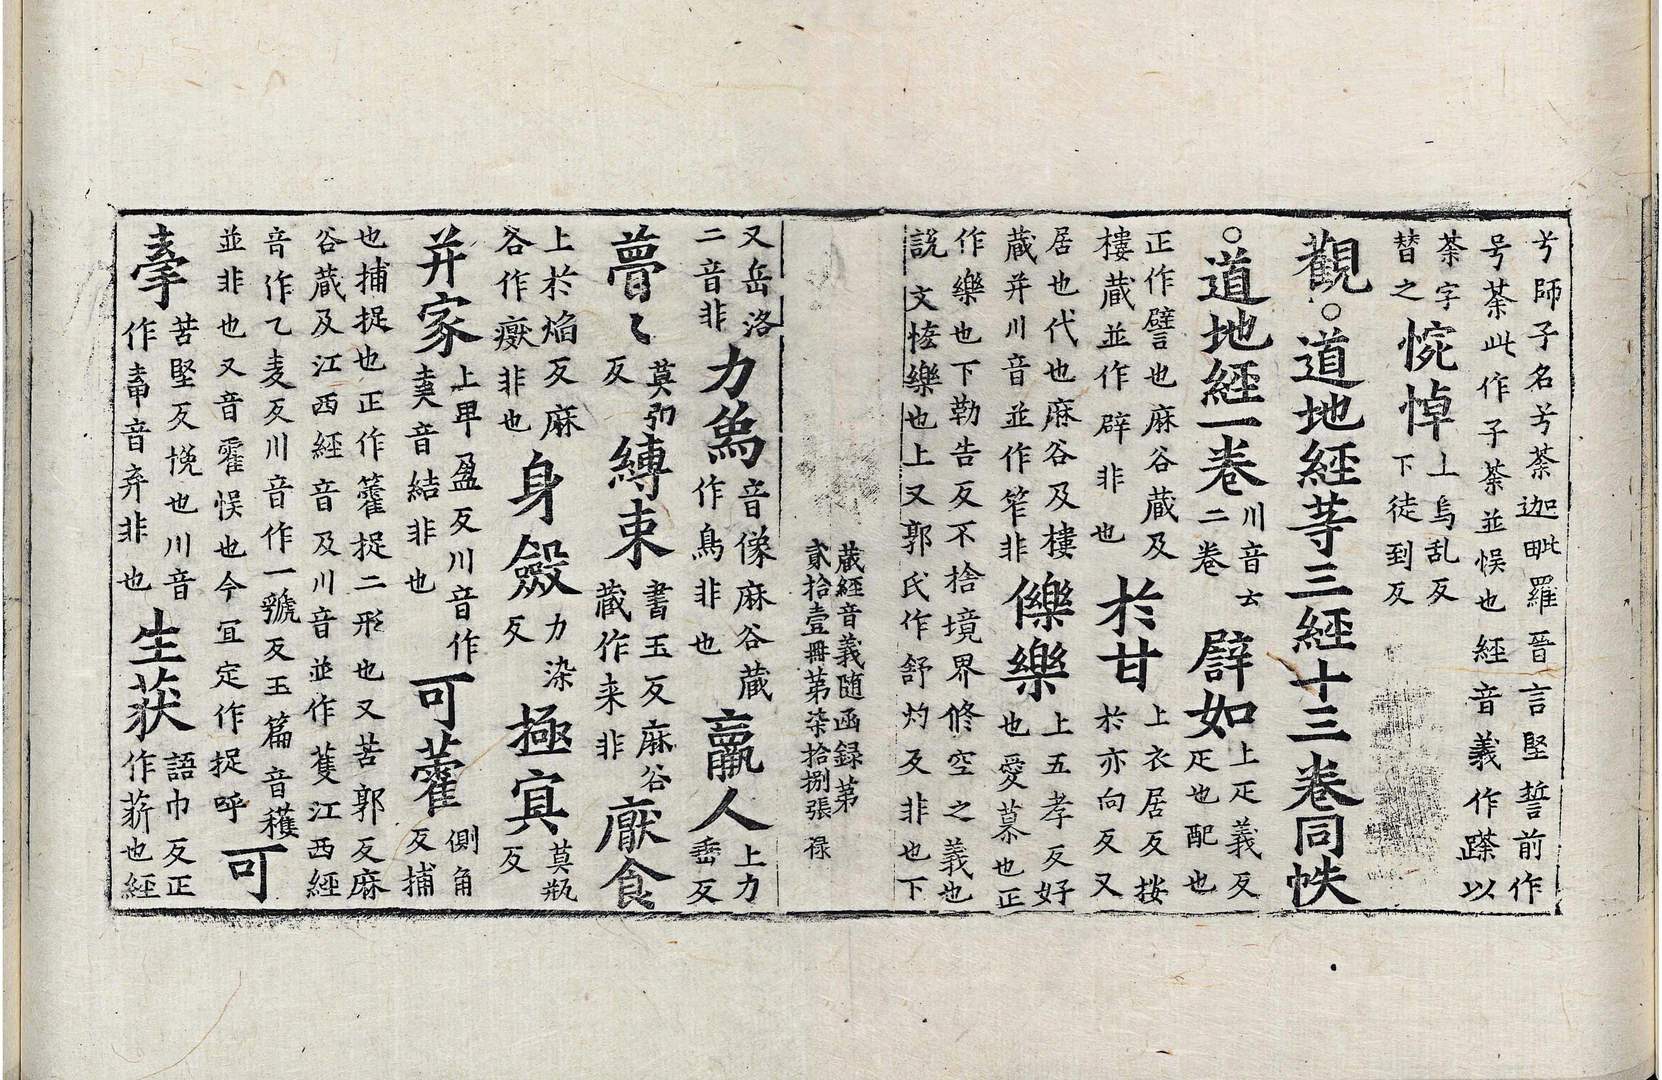 兮師子名兮荼迦毗羅晉言堅誓前作
号荼此作子荼並悮也經音義作蹂以
荼字
替之
惋悼
上烏乱反
下徒到反
觀○道地經等三經十三卷同帙
○道地經一卷
川音云
二卷
譬如
上疋義反
疋也配也
正作譬也麻谷蔵及
樓蔵並作辟非也
於甘
上衣居反按
於亦向反又
居也代也麻谷及樓
蔵并川音並作笮非
儝樂
上五孝反好
也愛慕也正
作樂也下勒告反不捨境界修空之義也
說文恡樂也上又郭氏作舒灼反非也下
蔵經音義随函録第
貳拾壹冊第柒拾捌張 禄
又岳洛
二音非
力爲
音像麻谷蔵
作鳥非也
羸人
上力
垂反
瞢〻
莫朋
反
縛束
書玉反麻谷
蔵作来非
厭食
上於焔反麻
谷作癈非也
身斂
力染
反
極㝠
莫瓶
反
并家
上甲盈反川音作
𡙇音結非也
可籗
側角
反捕
也捕捉也正作籗捉二形也又苦郭反麻
谷蔵及江西經音及川音並作蒦江西經
音作乙麦反川音作一虢反玉篇音穫
並非也又音霍悮也今冝定作捉呼
可
掔
苦堅反恱也川音
作𡘾音弃非也
生荻
語巾反正
作菥也經